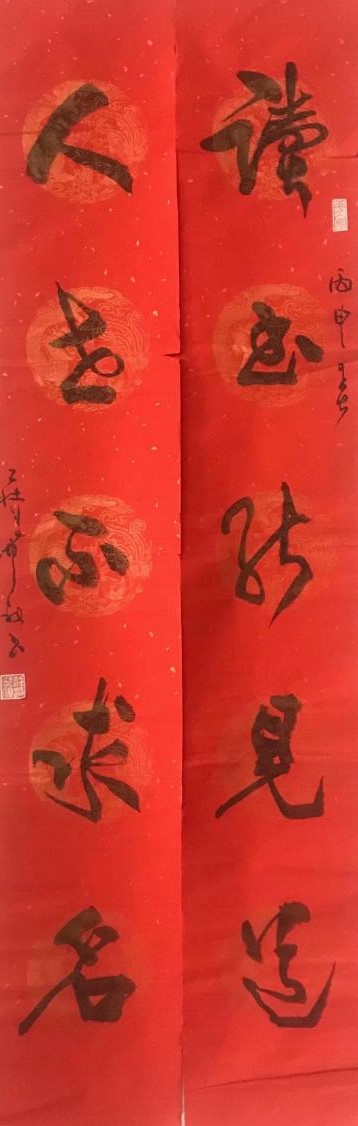 讀書能見道
丙申春
人世不求名